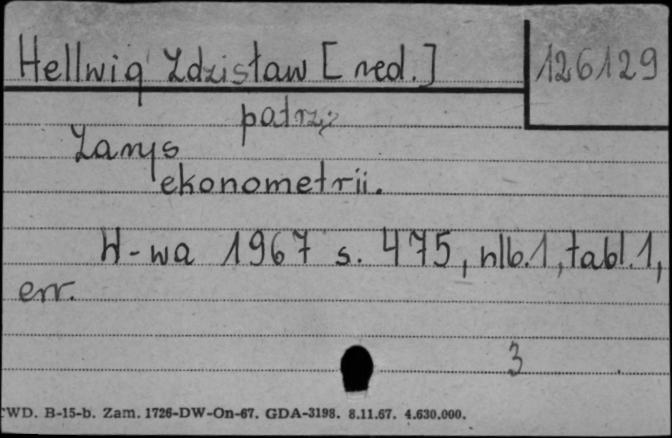 Hellwig Zdzisław [red.] 126129
patrz
Zarys
ekonometrii.
W-wa 1967 s. 475, nlb.1, tabl.1,
err.
3
CWD. B-15-b. Zam. 1726-DW-On-67. GDA-3198. 8.11.67. 4.630.000.